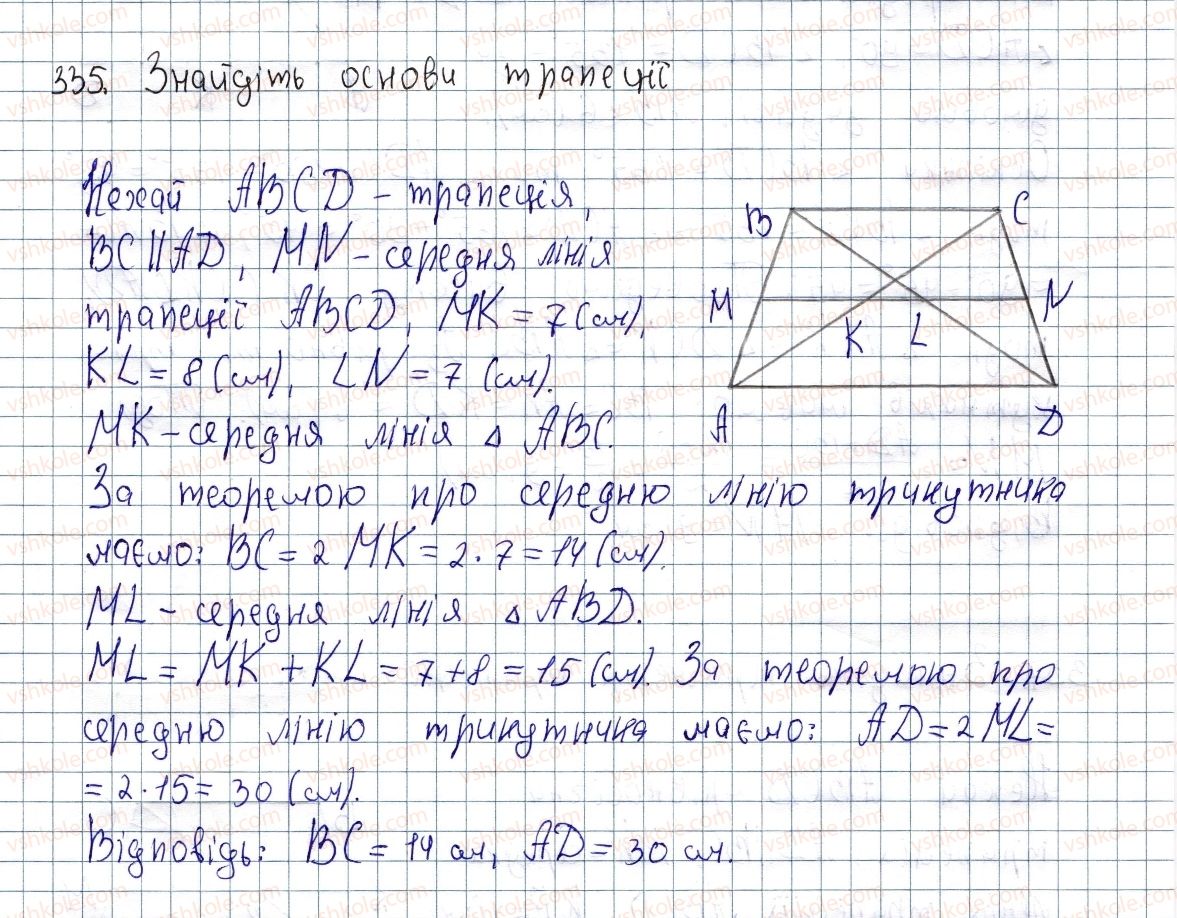 335. Знайдіть основи трапеції
Нехай ABCD - трапеція,
BC || AD, MN - середня лінія
трапеції ABCD, MK = 7 (см),
KL = 8 (см), LN = 7 (см).
MK - середня лінія △ ABC.
За теоремою про середню лінію трикутника
маємо: BC = 2 MK = 2 · 7 = 14 (см).
ML - середня лінія △ ABD.
ML = MK + KL = 7 + 8 = 15 (см). За теоремою про
середню лінію трикутника маємо: AD = 2 ML =
= 2 · 15 = 30 (см).
Відповідь: BC = 14 см, AD = 30 см.
B C
M N
K L
A D
vshkole.com